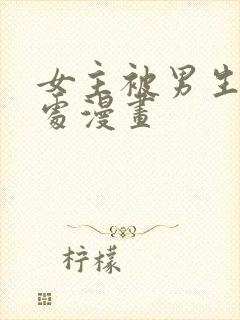 女主被男生
处漫畫
柠檬